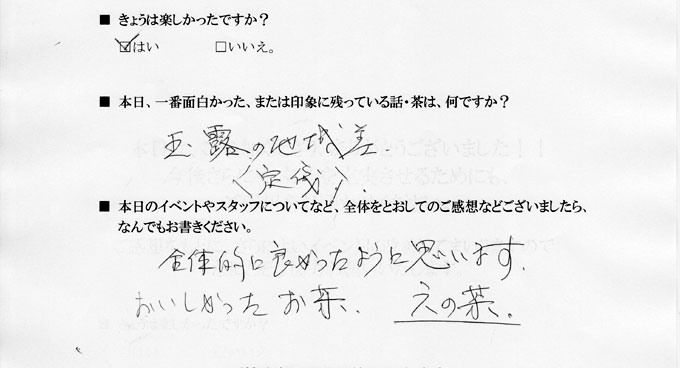 ■ きょうは楽しかったですか？
☑はい □いいえ。
■ 本日、一番面白かった、または印象に残っている話・茶は、何ですか？
玉露の地域差
■ 本日のイベントやスタッフについてなど、全体をとおしてのご感想などございましたら、
なんでもお書きください。
全体的に良かったように思います.
おいしかったお茶、 えの茶、